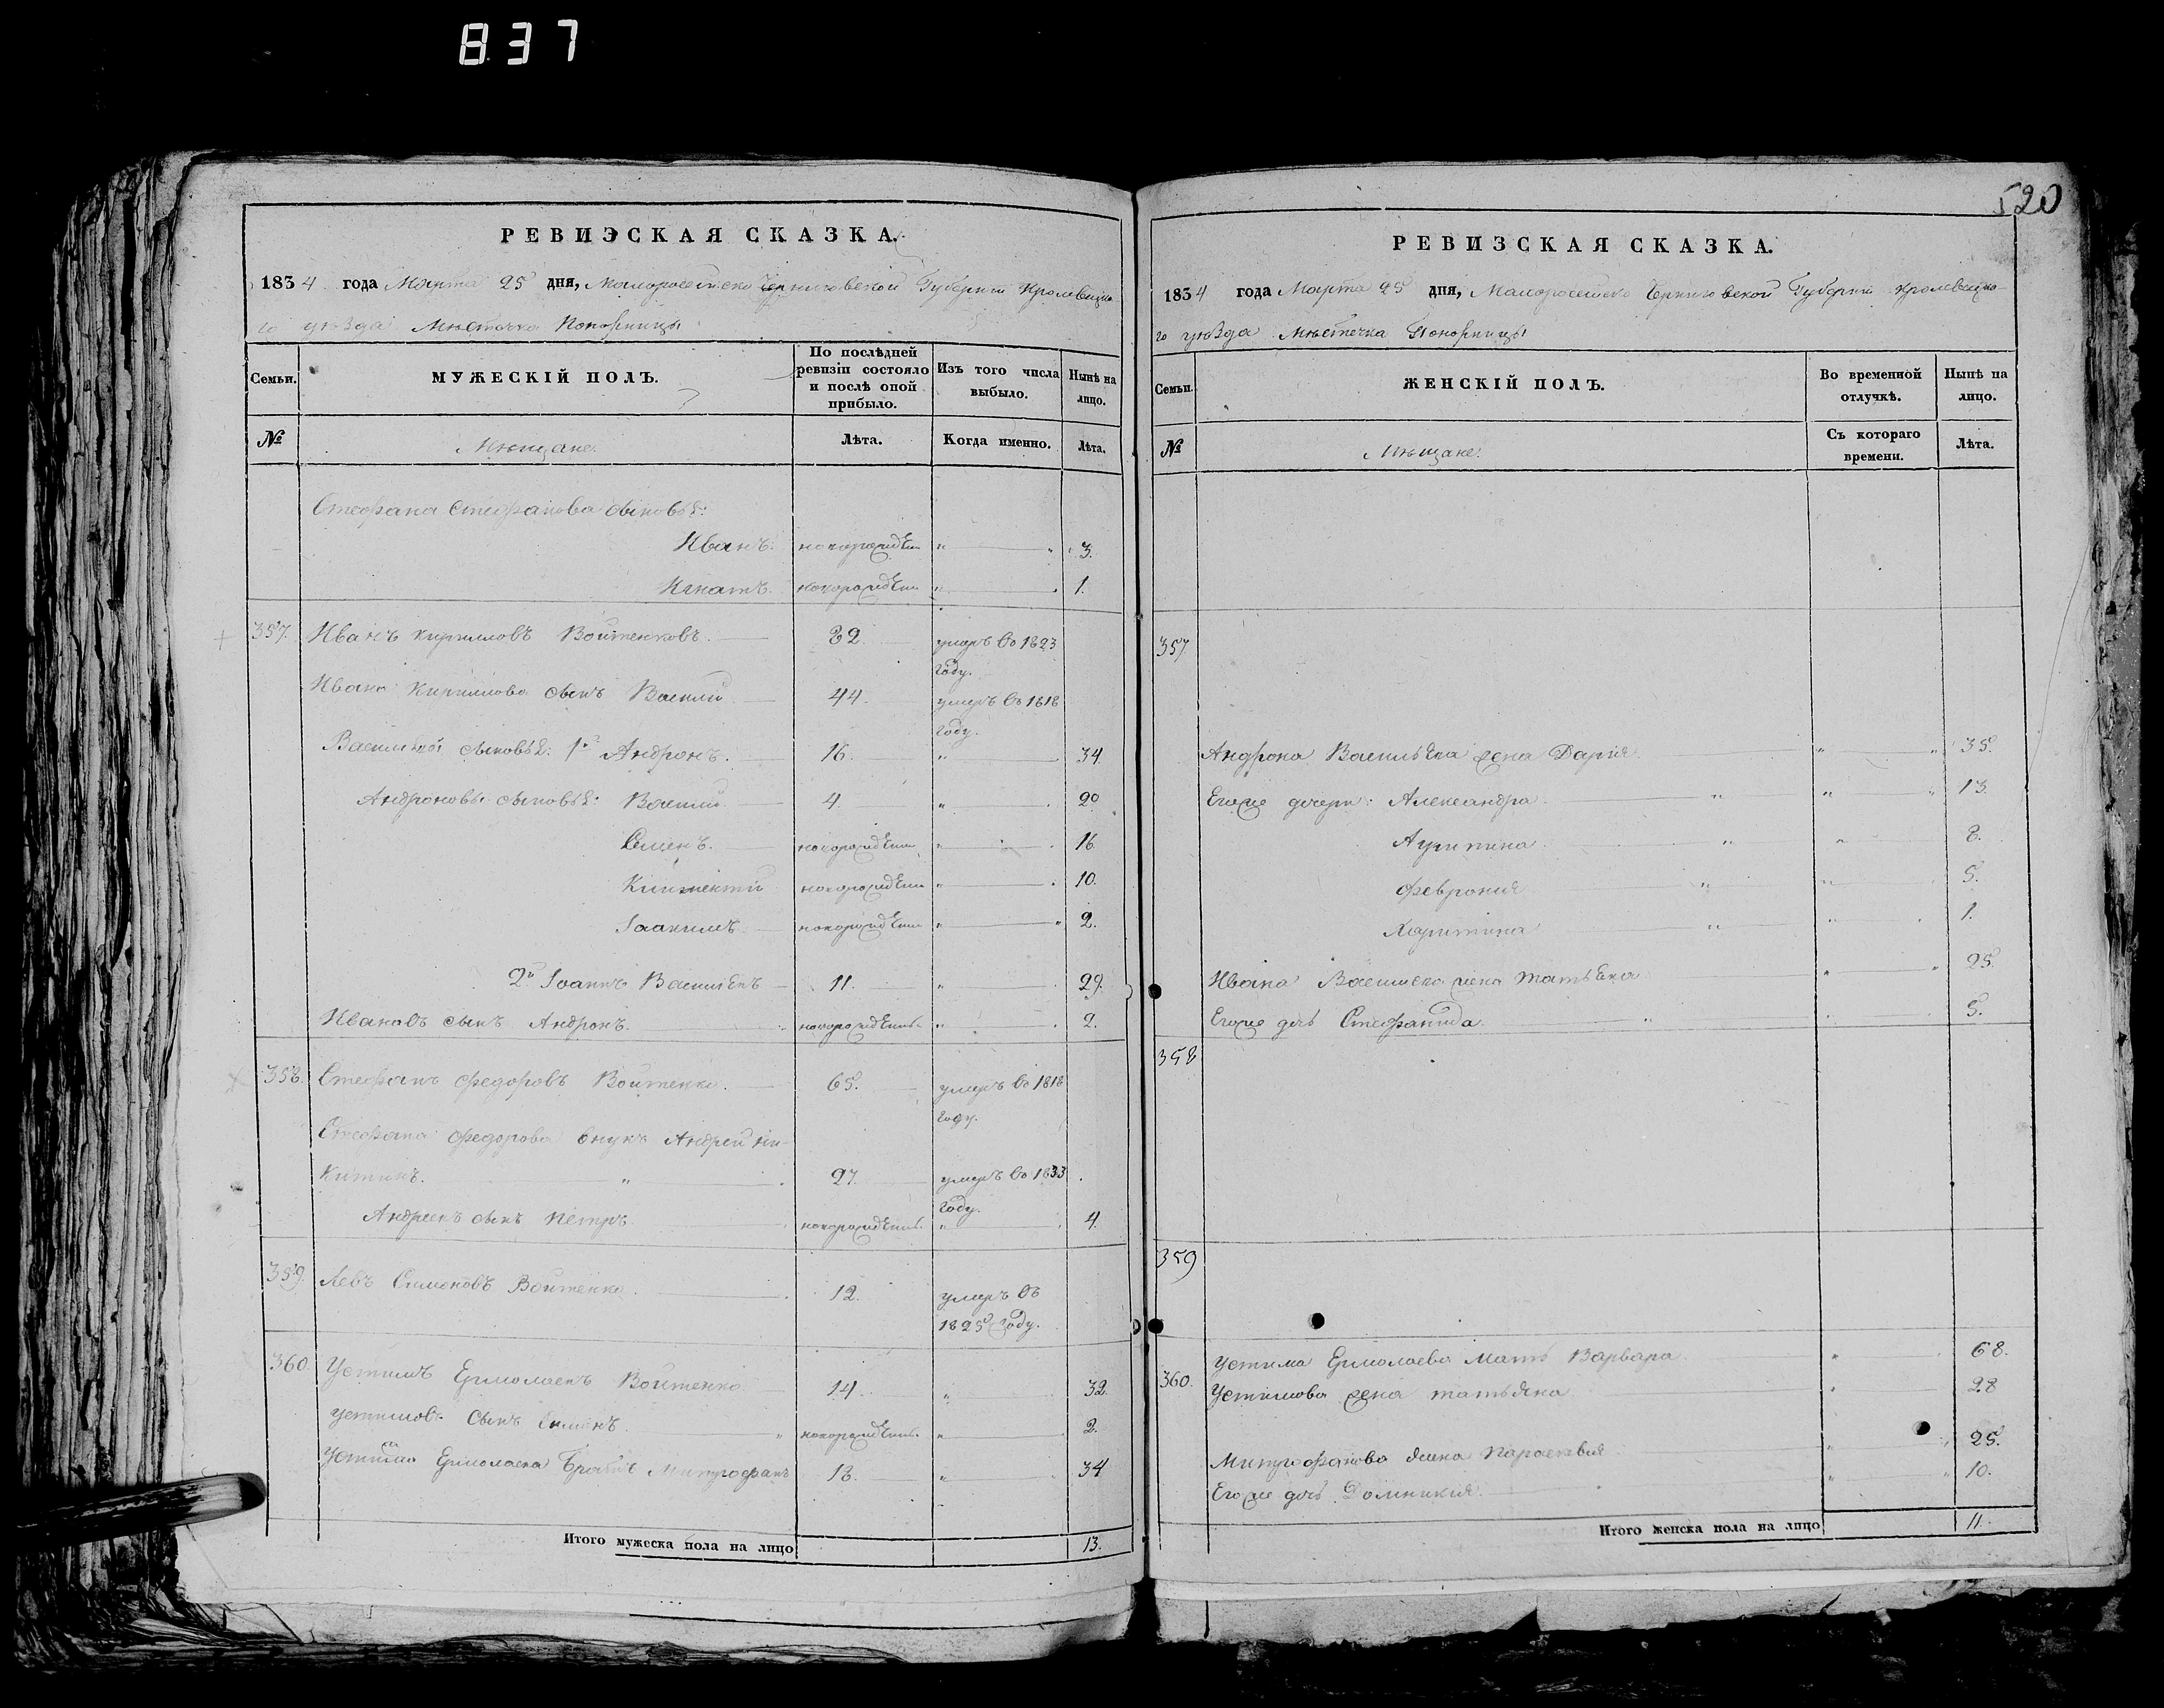 837
520
РЕВИЗСКАЯ СКАЗКА.
1834 года Марта 25 дня, Малоросейско Черниговской Губернии Кролевецка-
го уезда Мѣстечка Понорницы
Семьи. МУЖЕСКІЙ ПОЛЪ. По послѣдней ревизіи состояло и послѣ оной прибыло. Изъ того числа выбыло. Нынѣ на лицо.
№ Мѣщане. Лѣта. Когда именно. Лѣта.
Стефана Стефанова сыновья:
Иванъ. новорожден 3.
Игнатъ. новорожден 1.
357. Иванъ Кириловъ Войтенковъ. 82 умеръ въ 1823 году.
Ивана Кирилова сынъ Василий 44 умеръ въ 1818 году.
Васильевы сыновья: 1й Андронъ. 16. 34
Андроновы сыновья: Василий 4. 20
Семенъ. новорожден 16
новорожден 10.
Іоакимъ новорожден 2.
2й Іоаннъ Васильевъ 11. 29.
Ивановъ сынъ Андронъ. новорожден. 2.
358. Стефанъ Федоровъ Войтенко. 65. умеръ въ 1818 году.
Стефана Федорова внукъ Андрей Ни-
китинъ. 27. умеръ въ 1833 году.
Андреевъ сынъ Петръ новорожден. 4.
359. Левъ Симоновъ Войтенко. 12. умеръ въ
1825 году.
360. Устимъ Ермолаевъ Войтенко 14. 32.
Устимовъ сынъ Симонъ. новорожден. 2.
Устима Ермолаева братъ Митрофанъ 34
Итого мужеска пола на лицо 13.
РЕВИЗСКАЯ СКАЗКА.
1834 года Марта 25 дня, Малоросейско Черниговской Губернии Кролевецка-
го уѣзда Мѣстечка Понорницы
Семьи. ЖЕНСКІЙ ПОЛЪ. Во временной отлучкѣ. Нынѣ на лицо.
№ Мѣщане. Съ котораго времени. Лѣта.
357.
Андрона Васильева жена Дарія 35.
Егоже дочери: Александра 13.
8.
Феврония 5.
Харитина 1.
Ивана Васильева жена Татьяна 25
Егоже дочь Стефанида. 5.
358
359
Устима Ермолаева мать Варвара 68.
360. Устимова жена Татьяна 28
Митрофанова жена Параскевия 25.
Егоже дочь Домникия. 10.
Итого женска пола на лицо 11.